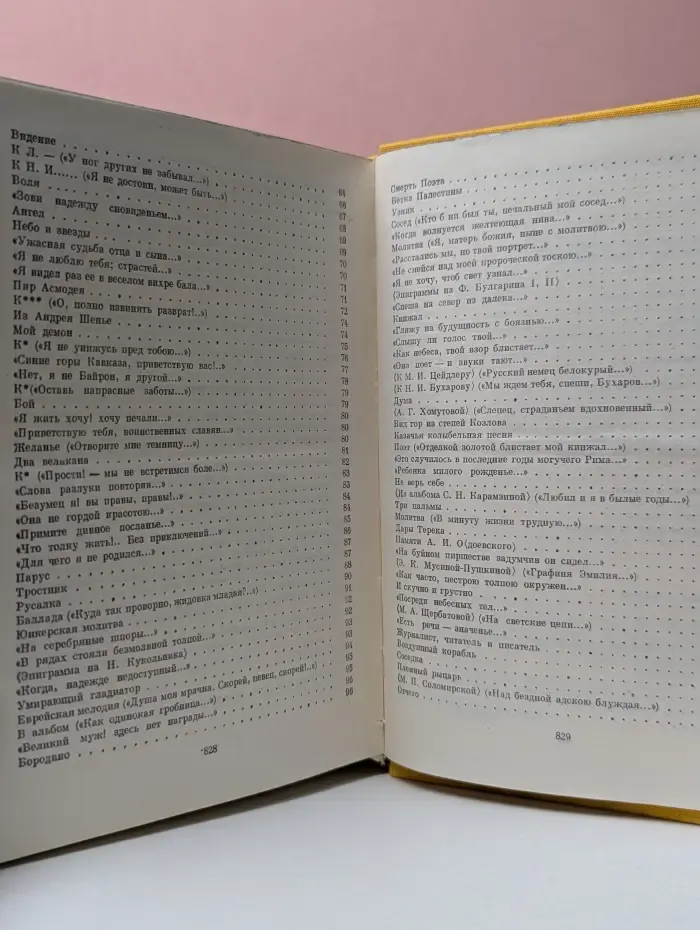 Видение
К Л. — («У ног других не забывал...»)
К Н. И...... («Я не достоин, может быть...») 64
Воля 66
«Зови надежду сновиденьем...» 67
Ангел 68
Небо и звезды 69
«Ужасная судьба отца и сына...» 69
«Я не люблю тебя; страстей...» 70
«Я видел раз ее в веселом вихре бала...» 70
Пир Асмодея 71
К*** («О, полно извинять разврат!..») 71
Из Андрея Шенье 72
Мой демон 74
К* («Я не унижусь пред тобою...») 74
«Синие горы Кавказа, приветствую вас!..» 75
«Нет, я не Байрон, я другой...» 76
К*(«Оставь напрасные заботы...») 77
Бой 78
«Я жить хочу! хочу печали...» 79
«Приветствую тебя, воинственных славян... 79
Желанье («Отворите мне темницу...») 80
Два великана 80
К* («Прости! — мы не встретимся боле...») 81
«Слова разлуки повторяя...» 82
«Безумец я! вы правы, правы!..» 83
«Она не гордой красотою...» 84
«Примите дивное посланье...» 84
«Что толку жить!.. Без приключений...» 85
«Для чего я не родился...» 86
Парус 87
Тростник 87
Русалка 88
Баллада («Куда так проворно, жидовка младая?..») 90
Юнкерская молитва 91
«На серебряные шпоры...» 92
«В рядах стояли безмолвной толпой...» 92
〈Эпиграмма на Н. Кукольника〉 93
«Когда, надежде недоступный...» 93
Умирающий гладиатор 94
Еврейская мелодия («Душа моя мрачна. Скорей, певец, скорей!..») 95
В альбом («Как одинокая гробница...») 95
«Великий муж! здесь нет награды...» 96
Бородино 96
828
Смерть Поэта
Ветка Палестины
Узник
Сосед («Кто б ни был ты, печальный мой сосед...»)
«Когда волнуется желтеющая нива...»
Молитва («Я, матерь божия, ныне с молитвою...»)
«Расстались мы, но твой портрет...»
«Не смейся над моей пророческой тоскою...»
«Я не хочу, чтоб свет узнал...»
〈Эпиграммы на Ф. Булгарина I, II〉
«Спеша на север из далека...»
Кинжал
«Гляжу на будущность с боязнью...»
«Слышу ли голос твой...»
«Как небеса, твой взор блистает...»
«Она поет — и звуки тают...»
〈К М. И. Цейдлеру〉 («Русский немец белокурый...»)
〈К Н. И. Бухарову〉 («Мы ждем тебя, спеши, Бухаров...»)
Дума
〈А. Г. Хомутовой〉 («Слепец, страданьем вдохновенный...»)
Вид гор из степей Козлова
Казачья колыбельная песня
Поэт («Отделкой золотой блистает мой кинжал...»)
«Это случилось в последние годы могучего Рима...»
«Ребенка милого рожденье...»
Не верь себе
〈Из альбома С. Н. Карамзиной〉 («Любил и я в былые годы...»)
Три пальмы
Молитва («В минуту жизни трудную...»)
Дары Терека
Памяти А. И. О〈доевского〉
«На буйном пиршестве задумчив он сидел...»
〈Э. К. Мусиной-Пушкиной〉 («Графиня Эмилия...»)
«Как часто, пестрою толпою окружен...»
И скучно и грустно
«Посреди небесных тел...»
〈М. А. Щербатовой〉 («На светские цепи...»)
«Есть речи — значенье...»
Журналист, читатель и писатель
Воздушный корабль
Соседка
Пленный рыцарь
〈М. П. Соломирской〉 («Над бездной адскою блуждая...»)
Отчего
829